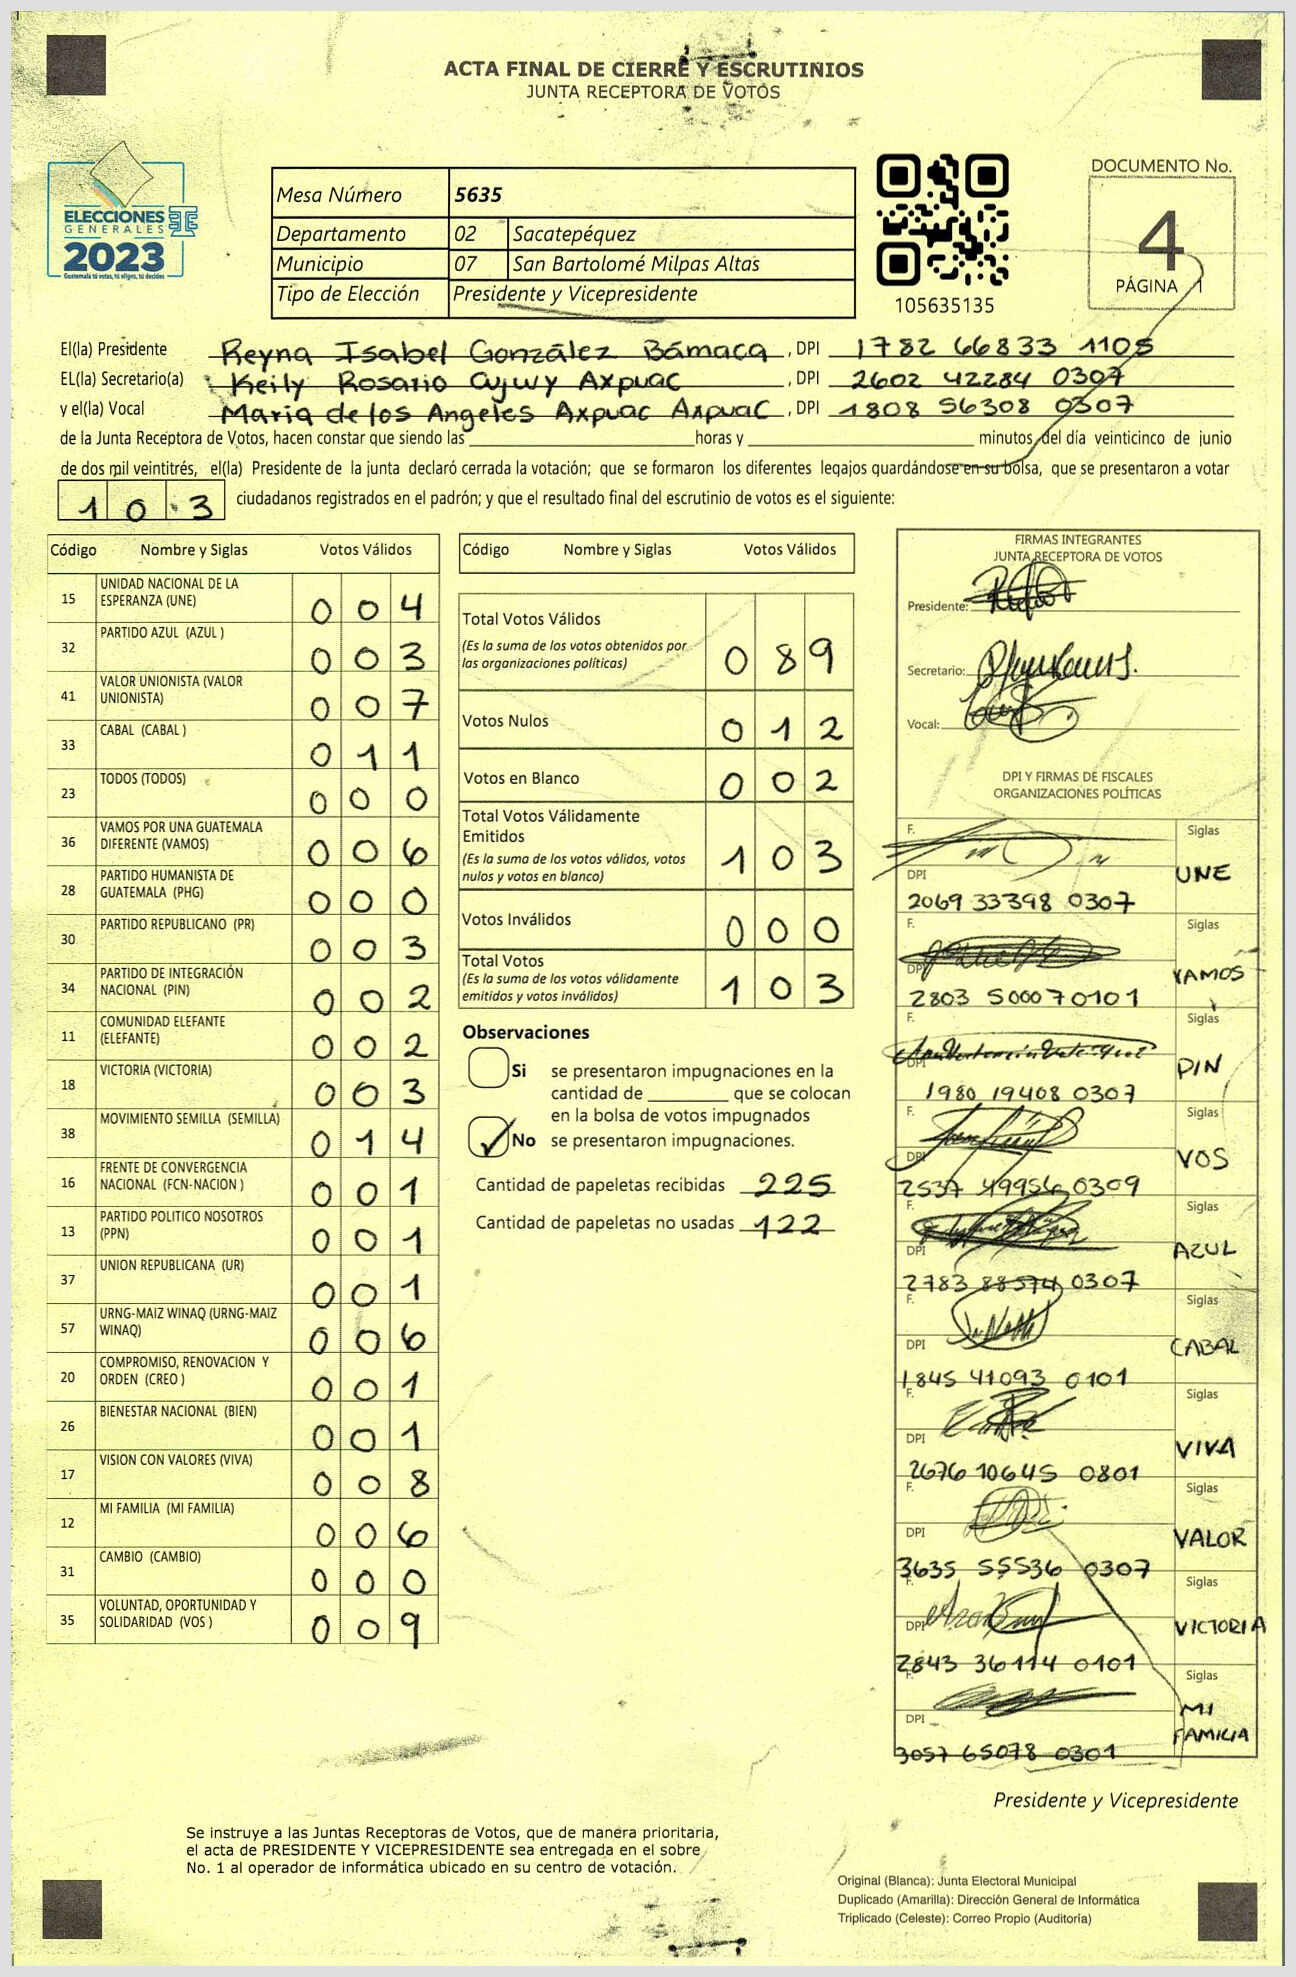 ACTA FINAL DE CIERRE Y ESCRUTINIOS
JUNTA RECEPTORA DE VOTOS
ELECCIONES
GENERALES
2023
Guatemala tú votas, tú eliges, tú decides
Mesa Número 5635
Departamento 02 Sacatepéquez
Municipio 07 San Bartolomé Milpas Altas
Tipo de Elección Presidente y Vicepresidente
105635135
DOCUMENTO No.
4
PÁGINA 1
El(la) Presidente Reyna Isabel González Bámaca , DPI 1782 66833 1105
EL(la) Secretario(a) Keily Rosario Cujwy Axpuac , DPI 2602 42284 0307
y el(la) Vocal Maria de los Angeles Axpuac Axpuac , DPI 1808 56308 0307
de la Junta Receptora de Votos, hacen constar que siendo las ____ horas y ____ minutos del día veinticinco de junio
de dos mil veintitrés, el(la) Presidente de la junta declaró cerrada la votación; que se formaron los diferentes legajos guardándose en su bolsa, que se presentaron a votar
103 ciudadanos registrados en el padrón; y que el resultado final del escrutinio de votos es el siguiente:
Código Nombre y Siglas Votos Válidos
15 UNIDAD NACIONAL DE LA ESPERANZA (UNE) 004
32 PARTIDO AZUL (AZUL ) 003
41 VALOR UNIONISTA (VALOR UNIONISTA) 007
33 CABAL (CABAL ) 011
23 TODOS (TODOS) 000
36 VAMOS POR UNA GUATEMALA DIFERENTE (VAMOS) 006
28 PARTIDO HUMANISTA DE GUATEMALA (PHG) 000
30 PARTIDO REPUBLICANO (PR) 003
34 PARTIDO DE INTEGRACIÓN NACIONAL (PIN) 002
11 COMUNIDAD ELEFANTE (ELEFANTE) 002
18 VICTORIA (VICTORIA) 003
38 MOVIMIENTO SEMILLA (SEMILLA) 014
16 FRENTE DE CONVERGENCIA NACIONAL (FCN-NACION ) 001
13 PARTIDO POLITICO NOSOTROS (PPN) 001
37 UNION REPUBLICANA (UR) 001
57 URNG-MAIZ WINAQ (URNG-MAIZ WINAQ) 006
20 COMPROMISO, RENOVACION Y ORDEN (CREO ) 001
26 BIENESTAR NACIONAL (BIEN) 001
17 VISION CON VALORES (VIVA) 008
12 MI FAMILIA (MI FAMILIA) 006
31 CAMBIO (CAMBIO) 000
35 VOLUNTAD, OPORTUNIDAD Y SOLIDARIDAD (VOS ) 009
Código Nombre y Siglas Votos Válidos
Total Votos Válidos 089
(Es la suma de los votos obtenidos por
las organizaciones políticas)
Votos Nulos 012
Votos en Blanco 002
Total Votos Válidamente
Emitidos 103
(Es la suma de los votos válidos, votos
nulos y votos en blanco)
Votos Inválidos 000
Total Votos 103
(Es la suma de los votos válidamente
emitidos y votos inválidos)
Observaciones
Si se presentaron impugnaciones en la
cantidad de ____ que se colocan
en la bolsa de votos impugnados
No se presentaron impugnaciones.
Cantidad de papeletas recibidas 225
Cantidad de papeletas no usadas 122
FIRMAS INTEGRANTES
JUNTA RECEPTORA DE VOTOS
Presidente:
Secretario:
Vocal:
DPI Y FIRMAS DE FISCALES
ORGANIZACIONES POLÍTICAS
F. Siglas
DPI UNE
2069 33398 0307
F. Siglas
DPI VAMOS
2803 50007 0101
F. Siglas
DPI PIN
1980 19408 0307
F. Siglas
DPI VOS
2537 49956 0309
F. Siglas
DPI AZUL
2783 88574 0307
F. Siglas
DPI CABAL
1845 41093 0101
F. Siglas
DPI VIVA
2676 10645 0801
F. Siglas
DPI VALOR
3635 55536 0307
F. Siglas
DPI VICTORIA
2843 36114 0101
F. Siglas
DPI MI FAMILIA
3057 65078 0301
Presidente y Vicepresidente
Se instruye a las Juntas Receptoras de Votos, que de manera prioritaria,
el acta de PRESIDENTE Y VICEPRESIDENTE sea entregada en el sobre
No. 1 al operador de informática ubicado en su centro de votación.
Original (Blanca): Junta Electoral Municipal
Duplicado (Amarilla): Dirección General de Informática
Triplicado (Celeste): Correo Propio (Auditoría)